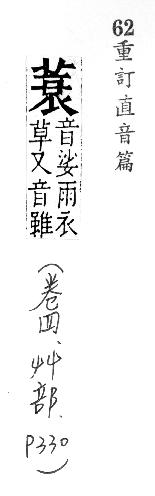 62重訂直音篇
蓑
音娑雨衣
草又音雖
（卷四、艸部、
P330）